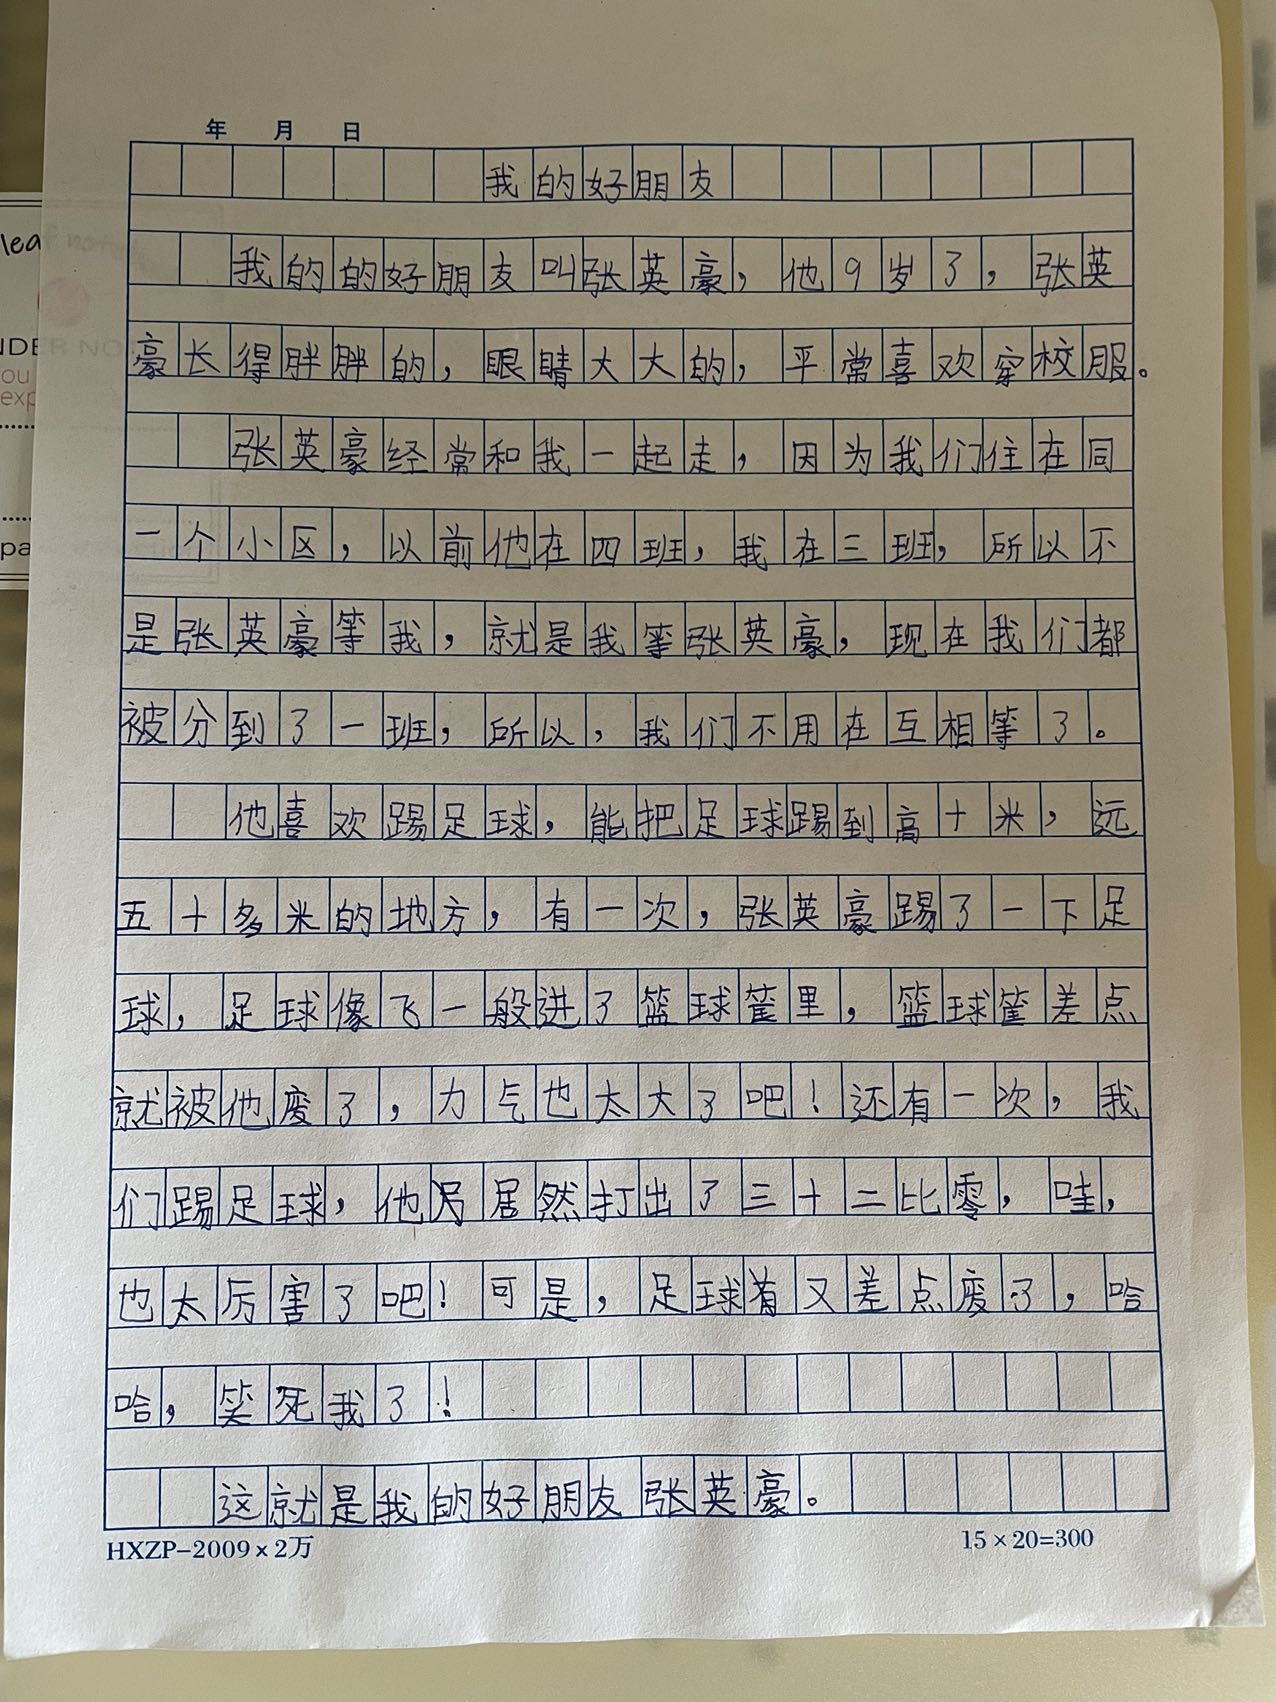 年 月 日
我的好朋友
我的的好朋友叫张英豪，他9岁了，张英
豪长得胖胖的，眼睛大大的，平常喜欢穿校服。
张英豪经常和我一起走，因为我们住在同
一个小区，以前他在四班，我在三班，所以不
是张英豪等我，就是我等张英豪，现在我们都
被分到了一班，所以，我们不用在互相等了。
他喜欢踢足球，能把足球踢到高十米，远
五十多米的地方，有一次，张英豪踢了一下足
球，足球像飞一般进了篮球筐里，篮球筐差点
就被他废了，力气也太大了吧！还有一次，我
们踢足球，他居然打出了三十二比零，哇，
也太厉害了吧！可是，足球又差点废了，哈
哈，笑死我了！
这就是我的好朋友张英豪。
HXZP-2009×2万
15×20=300